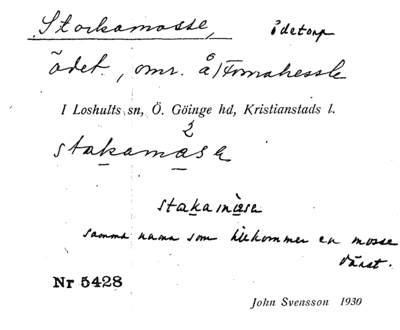 Stockamosse, ödetorp
ödet., omr. å Tornahessle
I Loshults sn, Ö. Göinge hd, Kristianstads l.
2
stakamæsa
stakamæsa
samma namn som tillkommer en mosse
därst.
Nr 5428
John Svensson 1930